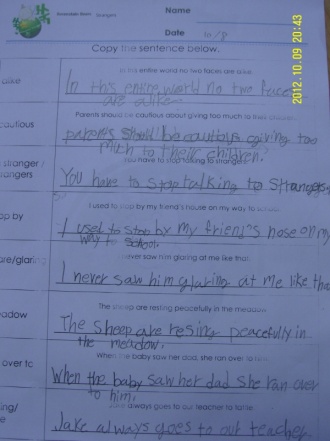 Name
Strangers
Date 10/8
Copy the sentence below.
2012.10.09 20:43
In this entire world no two faces are alike.
alike
In this entire world no two face
are alike
Parents should be cautious about giving too much to their
cautious
parents should be cautious giving too
much to their children.
You have to stop talking to strangers
stranger /
strangers
You have to stop talking to strangers
I used to stop by my friend's house on my way to school
op by
I used to stop by my friend's hose on my
way to school.
I never saw him glaring at me like that.
are/glaring
I never saw him glaring at me like tha
The sheep are resting peacefully in the meadow.
eadow
The sheep are resing peacefully in
the meadow.
When the baby saw her dad, she ran over to
over to
When the baby saw her dad she ran over
to him.
Jake always goes to our teacher to tattle
ing/
Jake always goes to out teacher